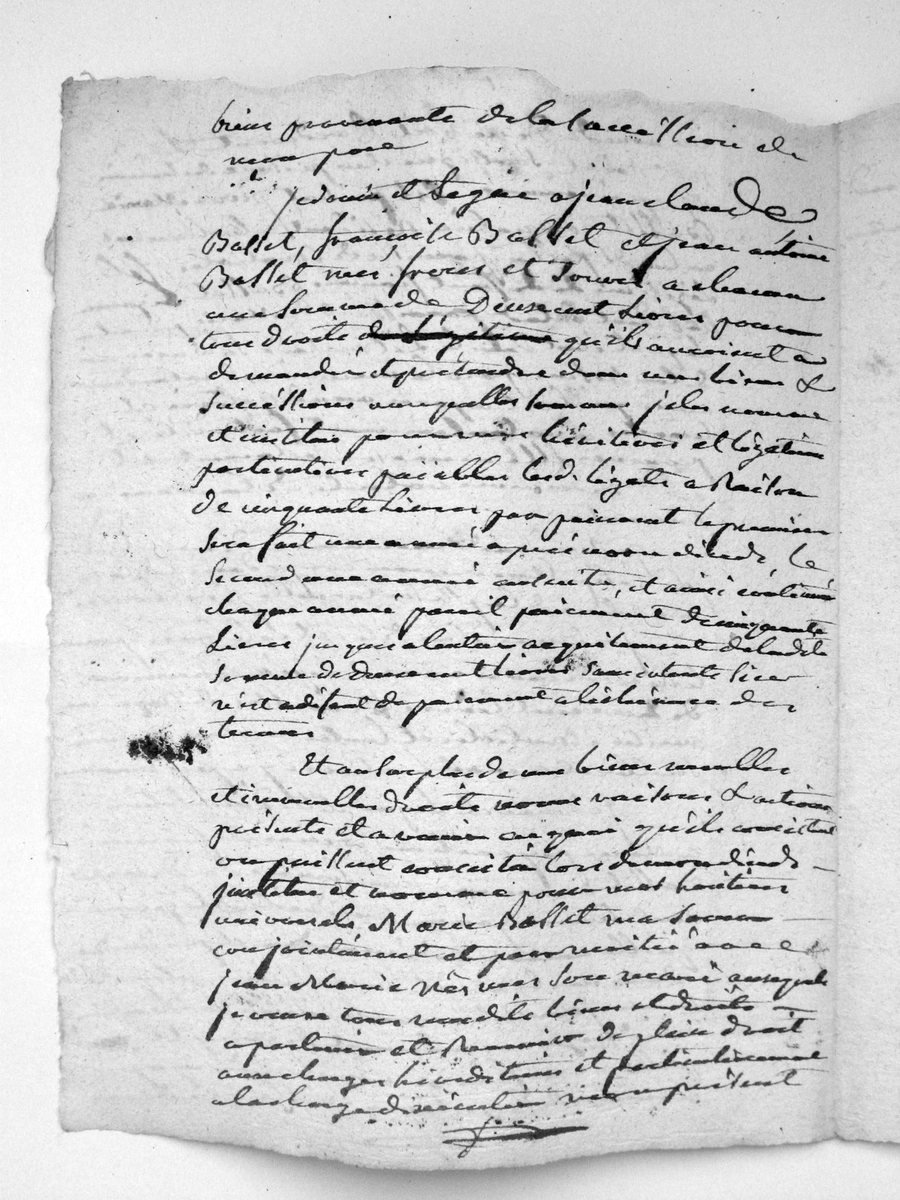 biens provenants de la succession de
mon pere
je donne et legue a jean claude
Basset, françoise Basset et jean antoine
Basset mes freres et soeurs a chacun
une somme de Deux cent Livres pour
tous droits de Légitime qu'ils auroient a
demander et pretendre dans mes biens &
successions auxquelles sommes je les nomme
et institue pour mes héritiers et légataires
particuliers paiables lesd. légats a Raison
de cinquante Livres par paiement le premier
sera fait une année après mon décéds, le
second une année ensuite, et ainsi continué
chaque année pareil paiement de cinquante
Livres jusques a lentier acquitement de ladite
somme de deux cent livres sans intérêts si ce
n'est a défaut de paiement a lécheance des
termes
Et au Surplus de mes biens meubles
et immeubles droits noms raisons & actions
présents et a venir en quoi qu'ils consistent
ou puissent consister lors de mon décéds
j'institue et nomme pour mes héritiers
universels, Marie Basset ma Soeur
conjointement et par moitié avec
jean Marie son mari auxquels
je veux tous mesdits biens et droits
apartenir et Revenir de plein droit
aux charges héréditaires et particulierement
a la charge d'exécuter mon présent